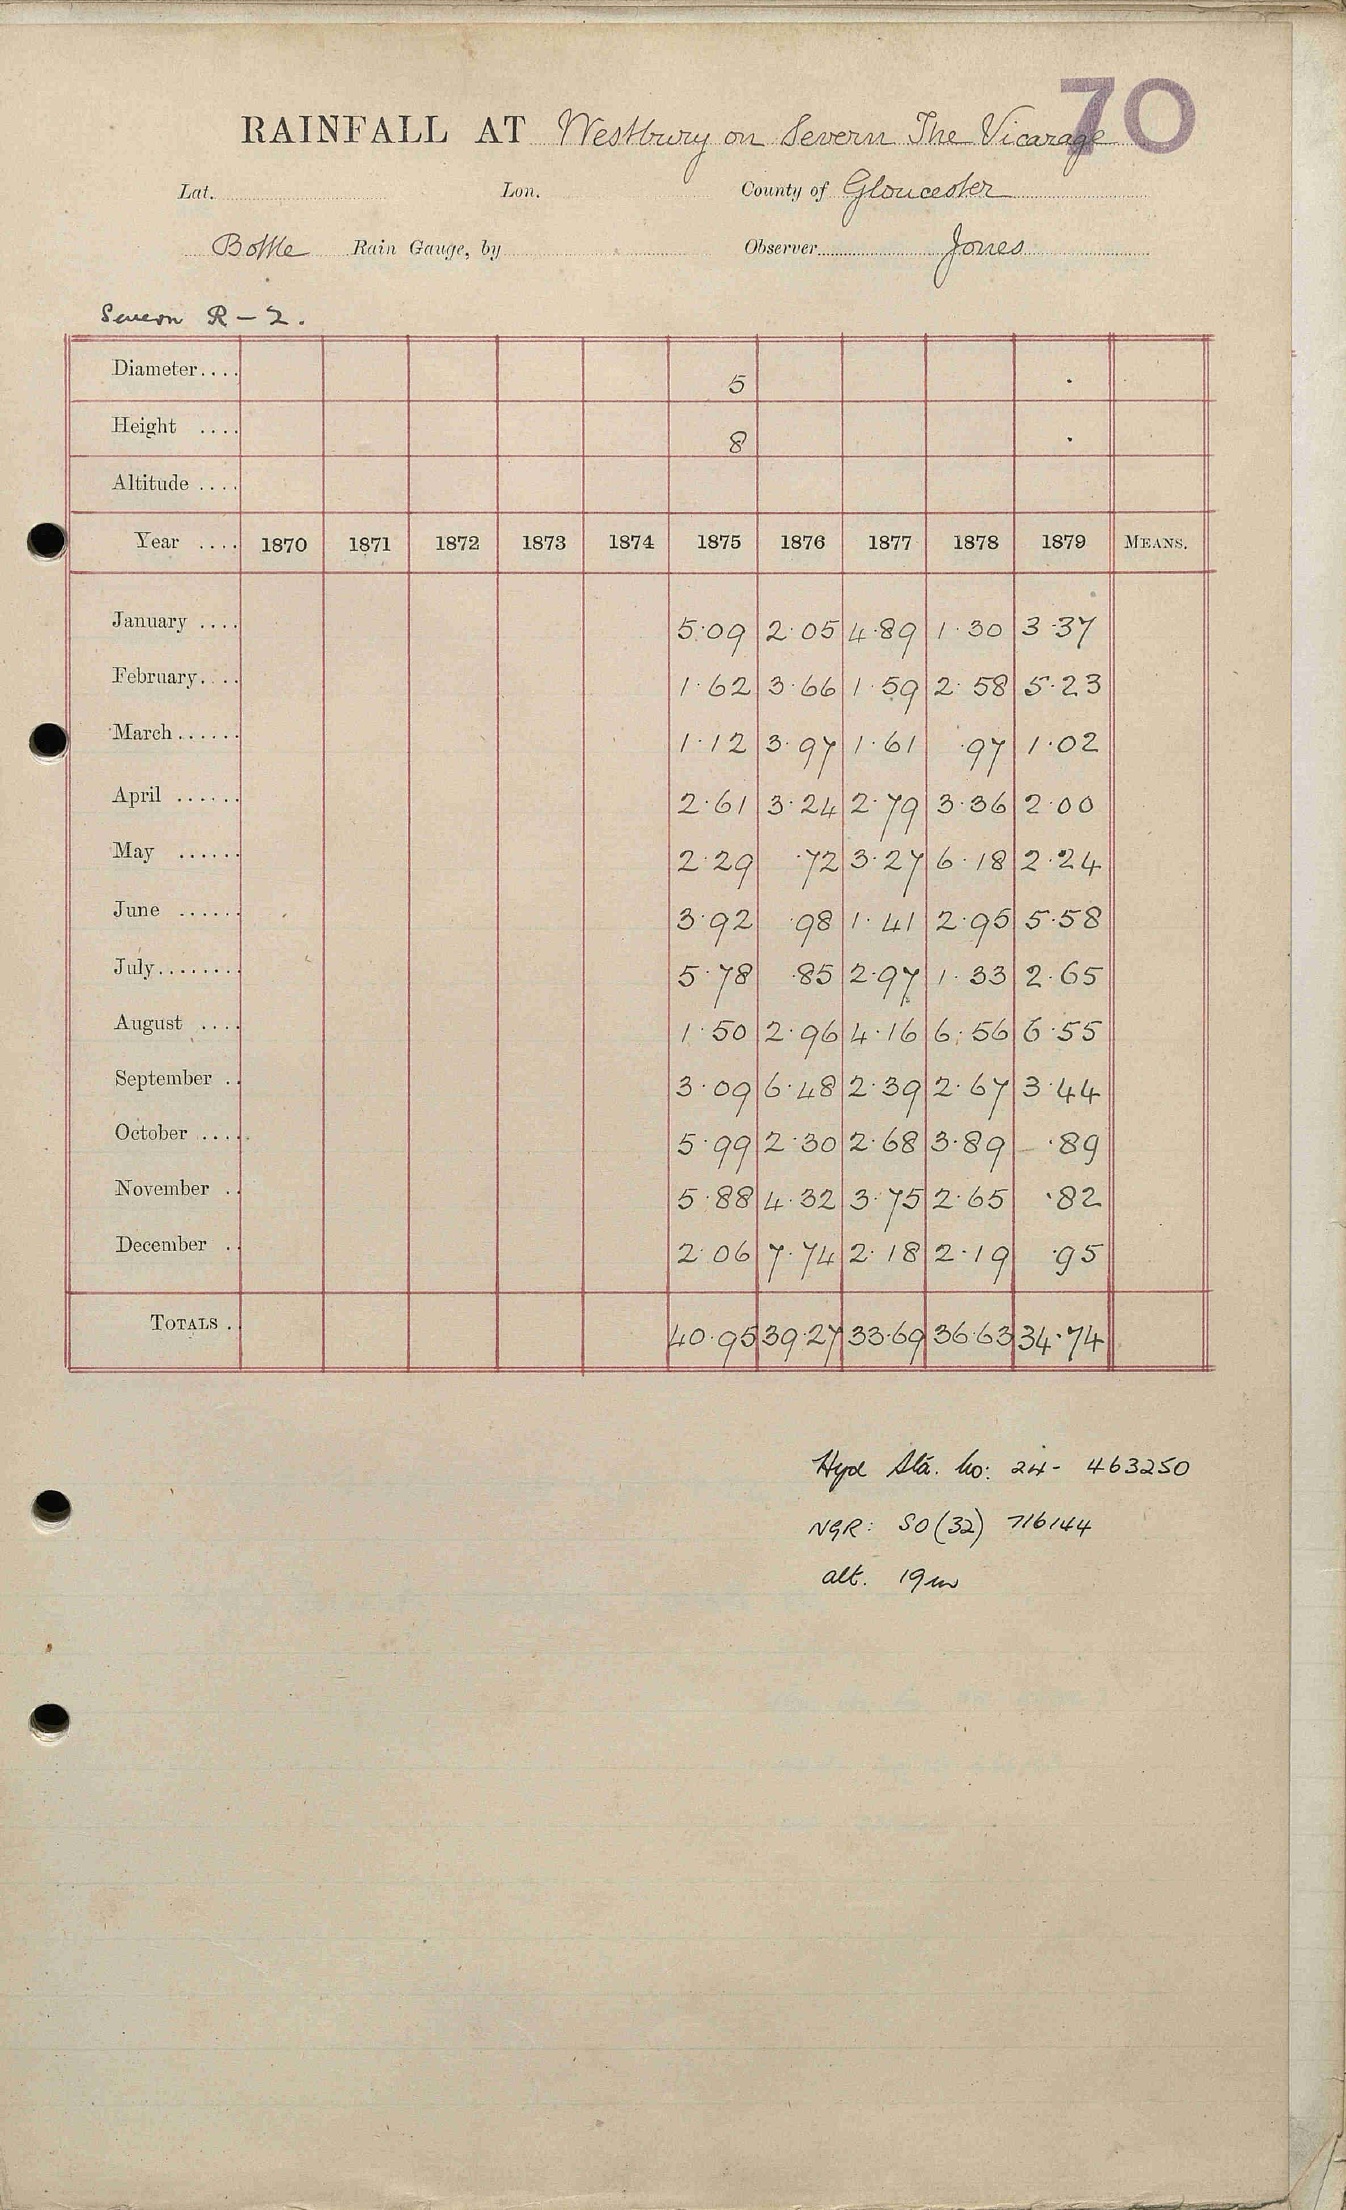 70
RAINFALL AT Westbury on Severn The Vicarage
Lat. Lon. County of Gloucester
Bottle Rain Gauge, by Observer Jones
Severn R - 2.
Diameter.... 5
Height .... 8
Altitude ....
Year .... 1870 1871 1872 1873 1874 1875 1876 1877 1878 1879 MEANS.
January .... 5·09 2·05 4·89 1·30 3·37
February.... 1·62 3·66 1·59 2·58 5·23
March...... 1·12 3·97 1·61 ·97 1·02
April ...... 2·61 3·24 2·79 3·36 2·00
May ...... 2·29 ·72 3·27 6·18 2·24
June ...... 3·92 ·98 1·41 2·95 5·58
July........ 5·78 ·85 2·97 1·33 2·65
August .... 1·50 2·96 4·16 6·56 6·55
September .. 3·09 6·48 2·39 2·67 3·44
October .... 5·99 2·30 2·68 3·89 ·89
November .. 5·88 4·32 3·75 2·65 ·82
December .. 2·06 7·74 2·18 2·19 ·95
TOTALS . 40·95 39·27 33·69 36·63 34·74
Hyd Sta. No: 24- 463250
NGR: SO (32) 716144
alt. 19m